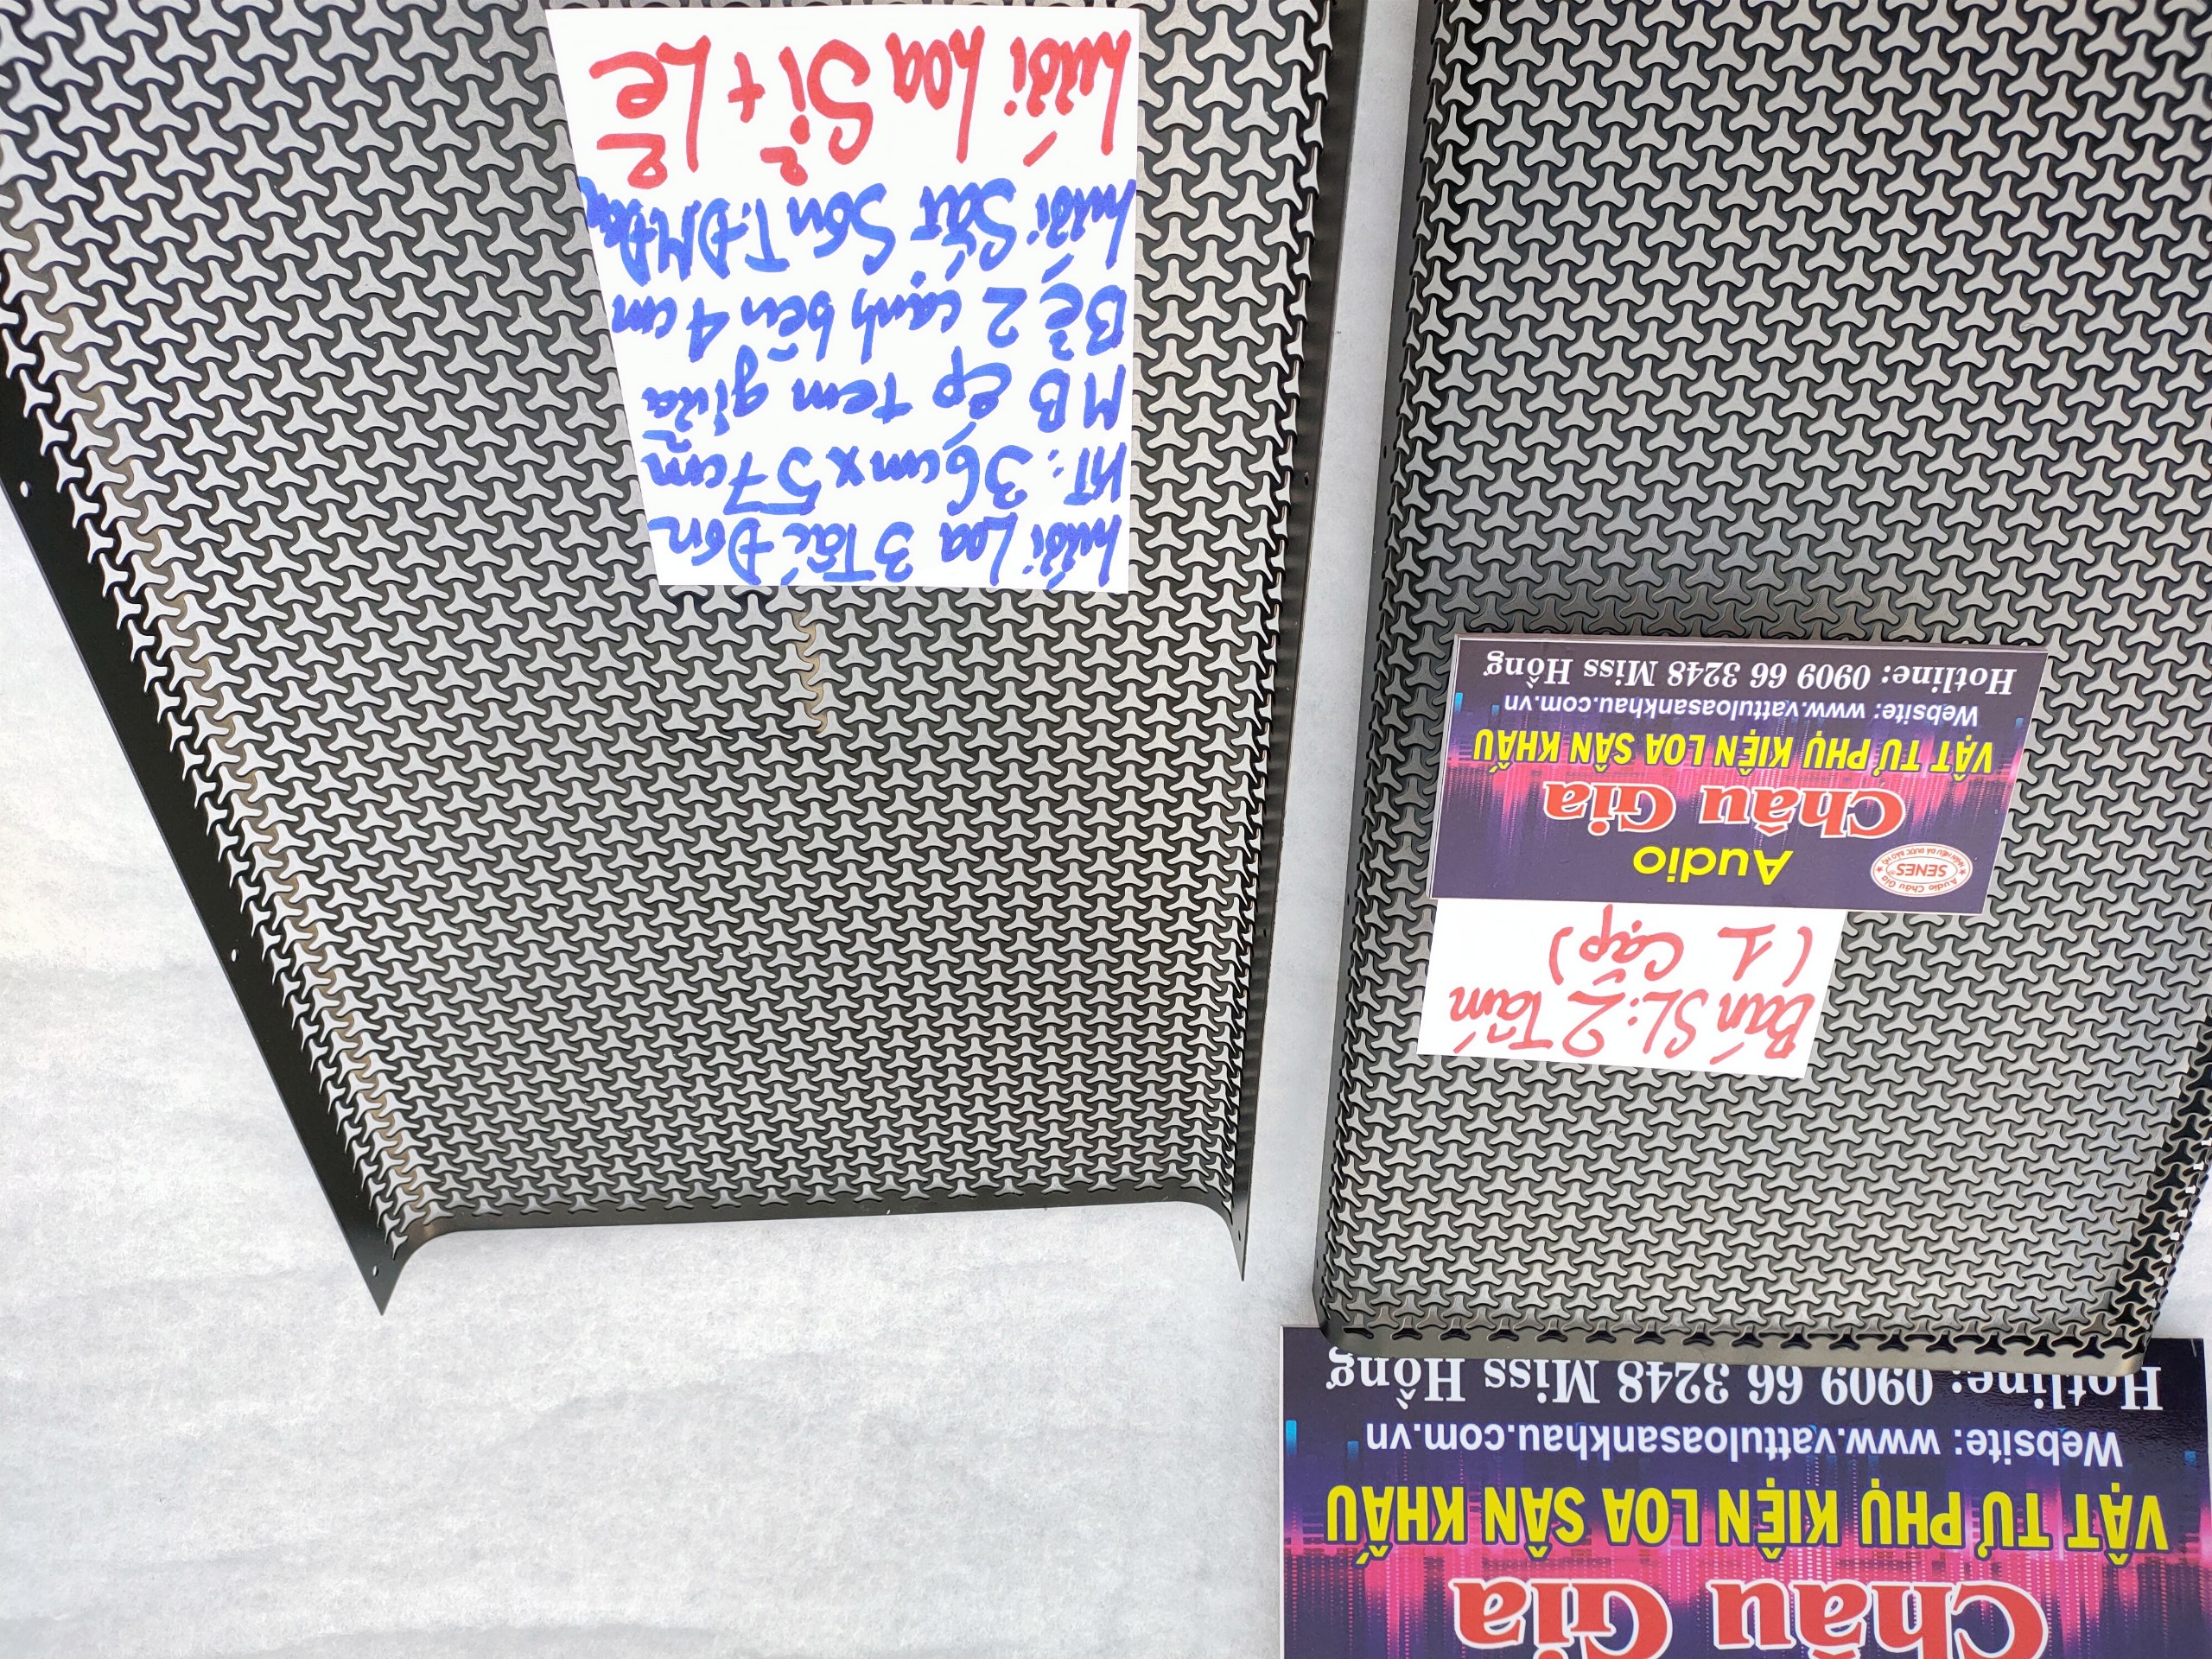 Châu Gia
VẬT TƯ PHỤ KIỆN LOA SÂN KHẤU
Website: www.vattuloasankhau.com.vn
Hotline: 0909 66 3248 Miss Hồng
Bán SL: 2 Tấm
(1 Cặp)
Audio Châu Gia
SENES
NHÃN HIỆU ĐÃ ĐƯỢC BẢO HỘ
Audio
Châu Gia
VẬT TƯ PHỤ KIỆN LOA SÂN KHẤU
Website: www.vattuloasankhau.com.vn
Hotline: 0909 66 3248 Miss Hồng
Lưới Loa 3 Tấc Đơn
KT: 36cm x 57cm
MB ép tem giữa
Bẻ 2 cạnh bên 4 cm
Lưới Sắt Sơn T.Đ M.Đen
Lưới Loa Sỉ + Lẻ